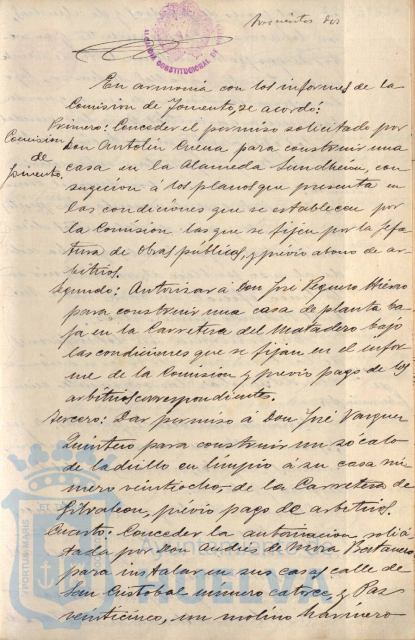 Doscientos dos
ALCALDIA CONSTITUCIONAL
En armonía con los informes de la
Comision de Fomento, se acordó:
Comision
de
Fomento.
Primero: Conceder el permiso solicitado por
Don Antolin Crena para construir una
casa en la Alameda Sundheim, con
sugecion á los planos que presenta en
las condiciones que se establecen por
la Comision las que se fijen por la Jefa-
tura de Obras públicas, y prévio abono de ar-
bitrios.
Segundo: Autorizar á Don José Peguero Hierro
para construir una casa de planta ba-
ja en la Carretera del Matadero bajo
las condiciones que se fijan en el infor-
me de la Comision y previo pago de los
arbitrios correspondientes.
Tercero: Dar permiso á Don José Vazquez
Quintero para construir un zócalo
de ladrillo en limpio á su casa nú-
mero veintiocho, de la Carretera de
Gibraleon, prévio pago de arbitrios.
Cuarto: Conceder la autorizacion solici
tada por Don Andrés de Mora Bertanero
para instalar en sus casas calle de
San Cristobal número catorce, y Paz
veinticinco, un molino harinero
PORTUS MARIS
Ayuntamiento de
HUELVA